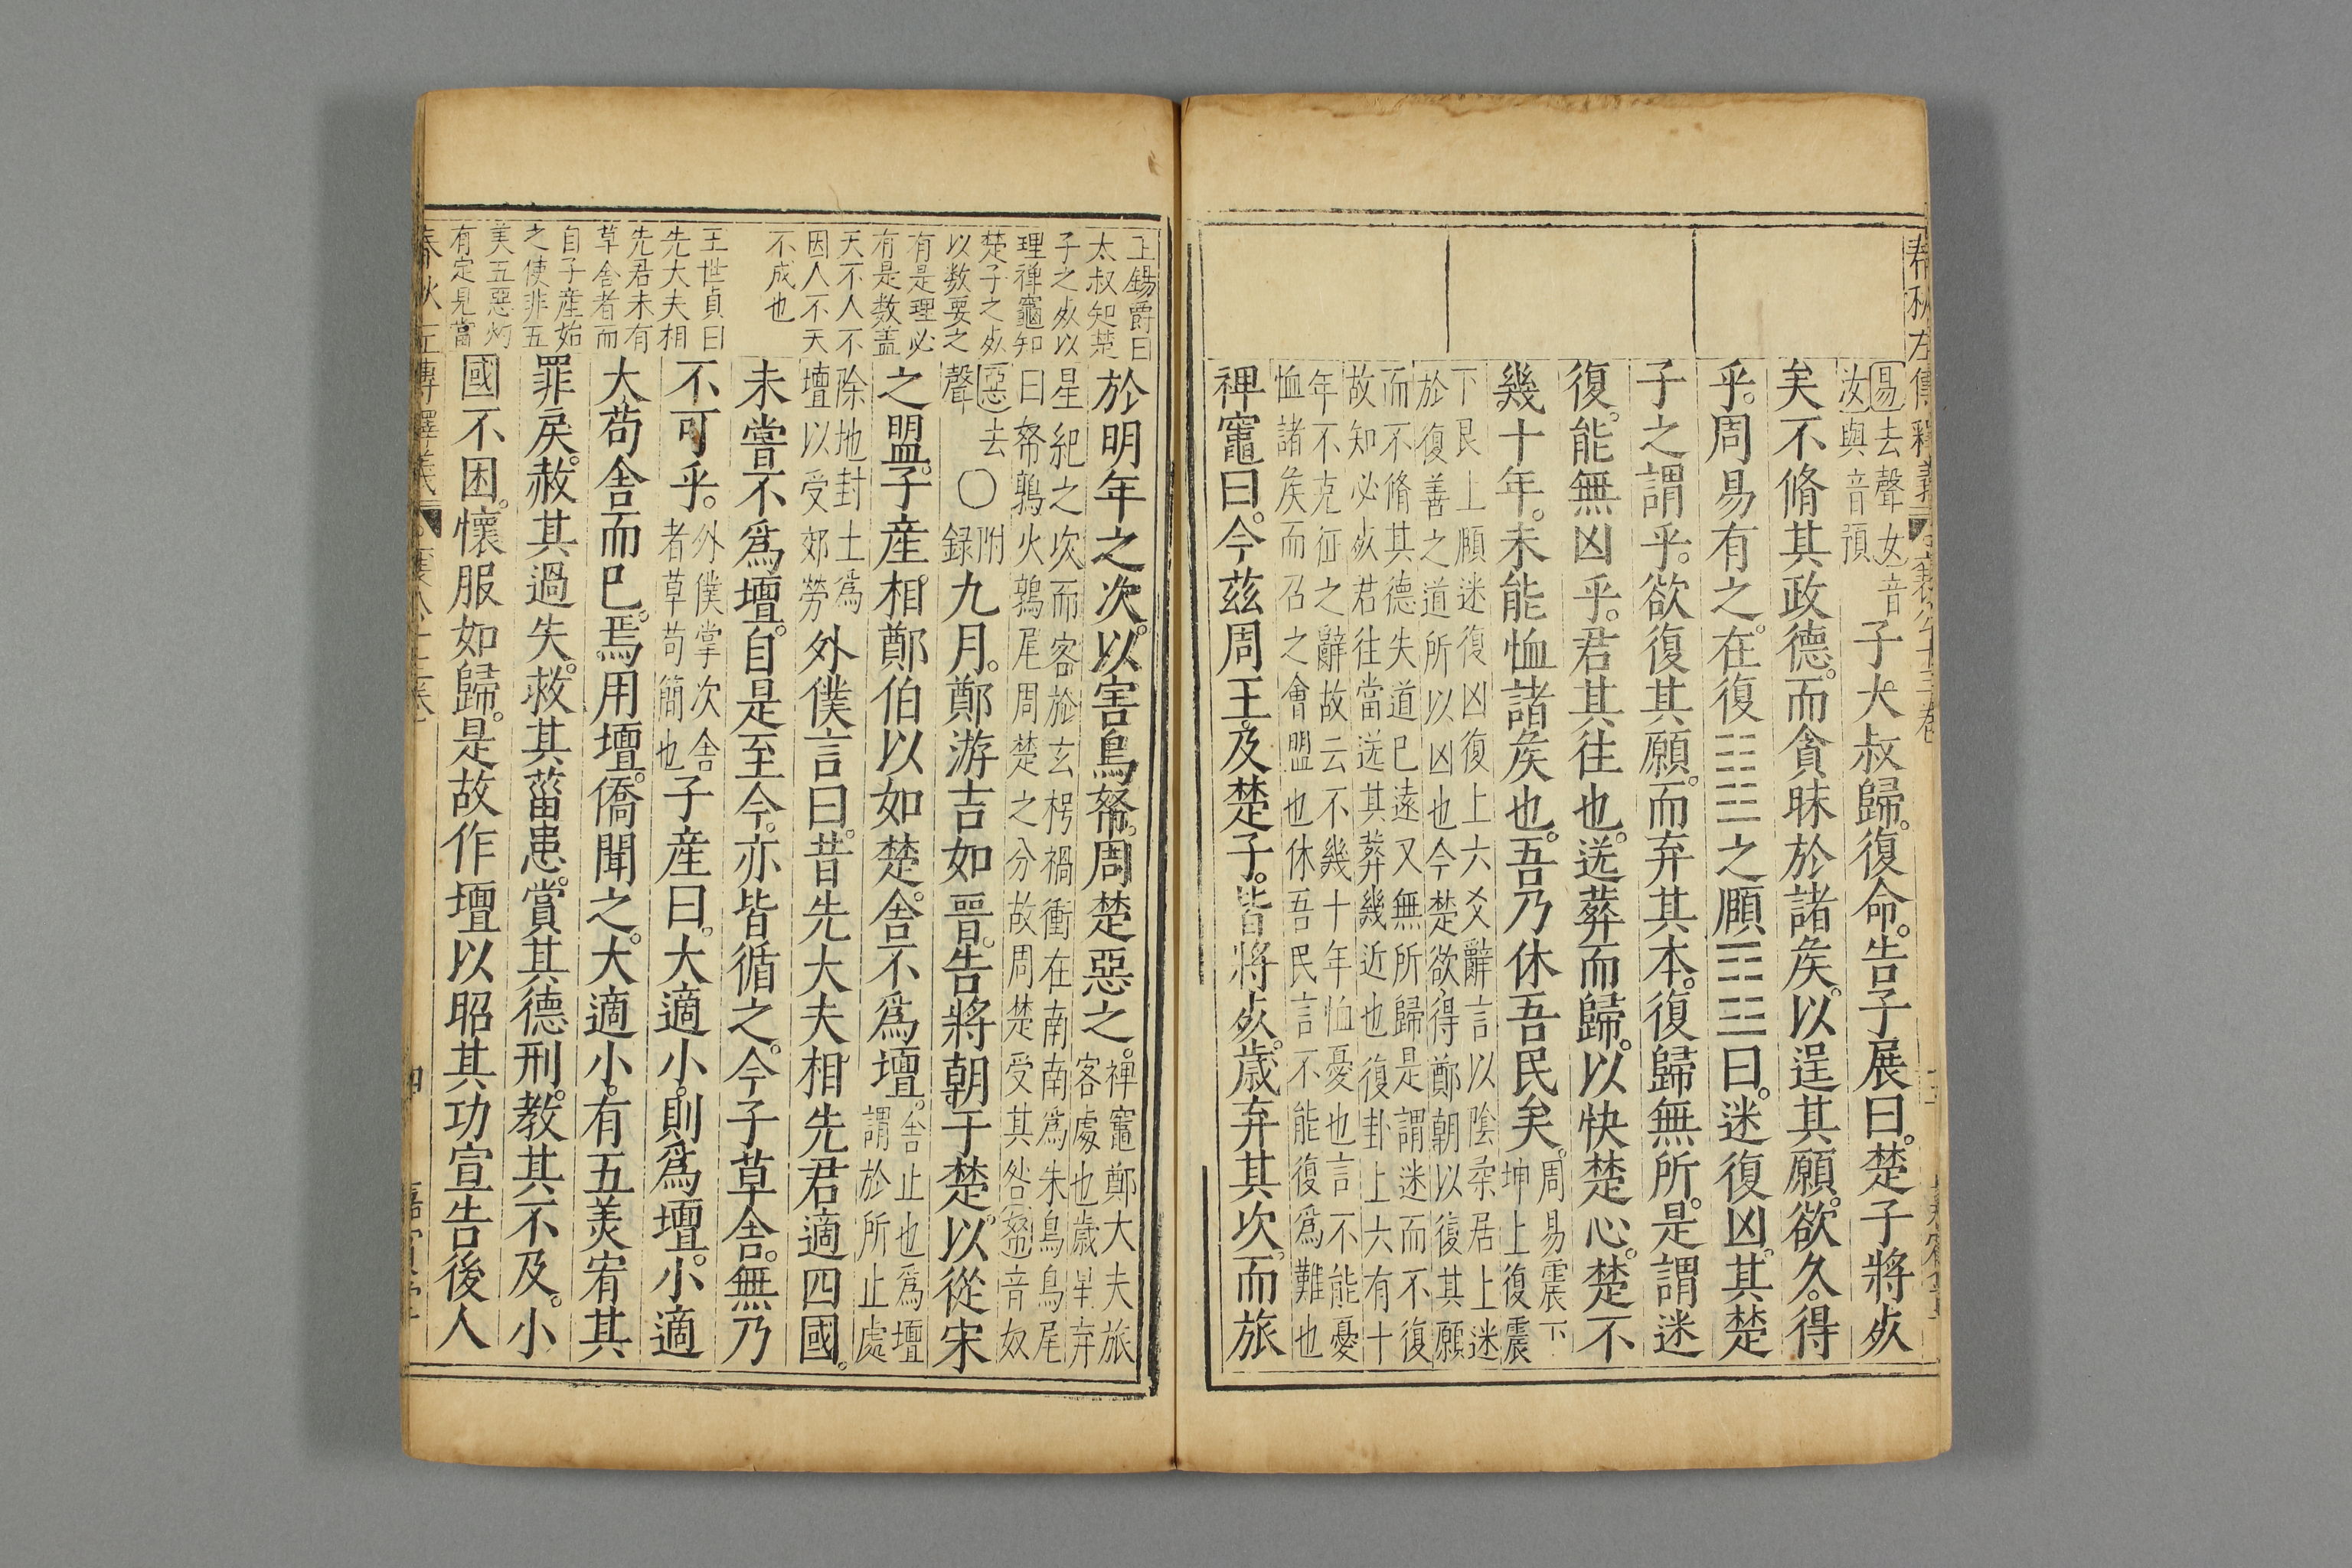 春秋左傳釋義
易去聲女音
汝與音預
子大叔歸。復命。告子展曰。楚子將死
矣不脩其政德。而貪昧於諸矦。以逞其願。欲久得
乎。周易有之。在復䷗之頤䷚曰。迷復凶。其楚
子之謂乎。欲復其願。而弃其本。復歸無所。是謂迷
復。能無凶乎。君其往也。送葬而歸。以快楚心。楚不
幾十年。未能恤諸矦也。吾乃休吾民矣。
周易震下
坤上復震
下艮上頤迷復凶復上六爻辭言以陰柔居上迷
於復善之道所以凶也今楚欲得鄭朝以復其願
而不脩其德失道已遠又無所歸是謂迷而不復
故知必死君往當送其葬幾近也復卦上六有十
年不克征之辭故云不幾十年恤憂也言不能憂
恤諸矦而召之會盟也休吾民言不能復爲難也
裨竈曰。今兹周王及楚子。皆將死。歲弃其次。而旅
王錫爵曰
太叔知楚
子之死以
理裨竈知
楚子之死
以数要之
有是理必
有是数盖
天不人不
因人不天
不成也
王世貞曰
先大夫相
先君未有
草舍者而
自子產始
之使非五
美五惡灼
有定見當
於明年之次。以害鳥帑。周楚惡之。
裨竈鄭大夫旅
客處也歲星弃
星紀之次而客於玄枵禍衝在南南爲朱鳥鳥尾
曰帑鶉火鶉尾周楚之分故周楚受其咎帑音奴
惡去
聲
〇
附
録
九月。鄭游吉如晉。告將朝于楚。以從宋
之盟。子産相鄭伯以如楚。舍不爲壇。
舍止也爲壇
謂於所止處
除地封土爲
壇以受郊勞
外僕言曰。昔先大夫相先君適四國。
未嘗不爲壇。自是至今。亦皆循之。今子草舍。無乃
不可乎。
外僕掌次舍
者草苟簡也
子産曰。大適小。則爲壇。小適
大苟舍而已。焉用壇。僑聞之。大適小。有五美宥其
罪戾。赦其過失。救其菑患。賞其德刑。教其不及。小
國不困。懷服如歸。是故作壇以昭其功宣告後人